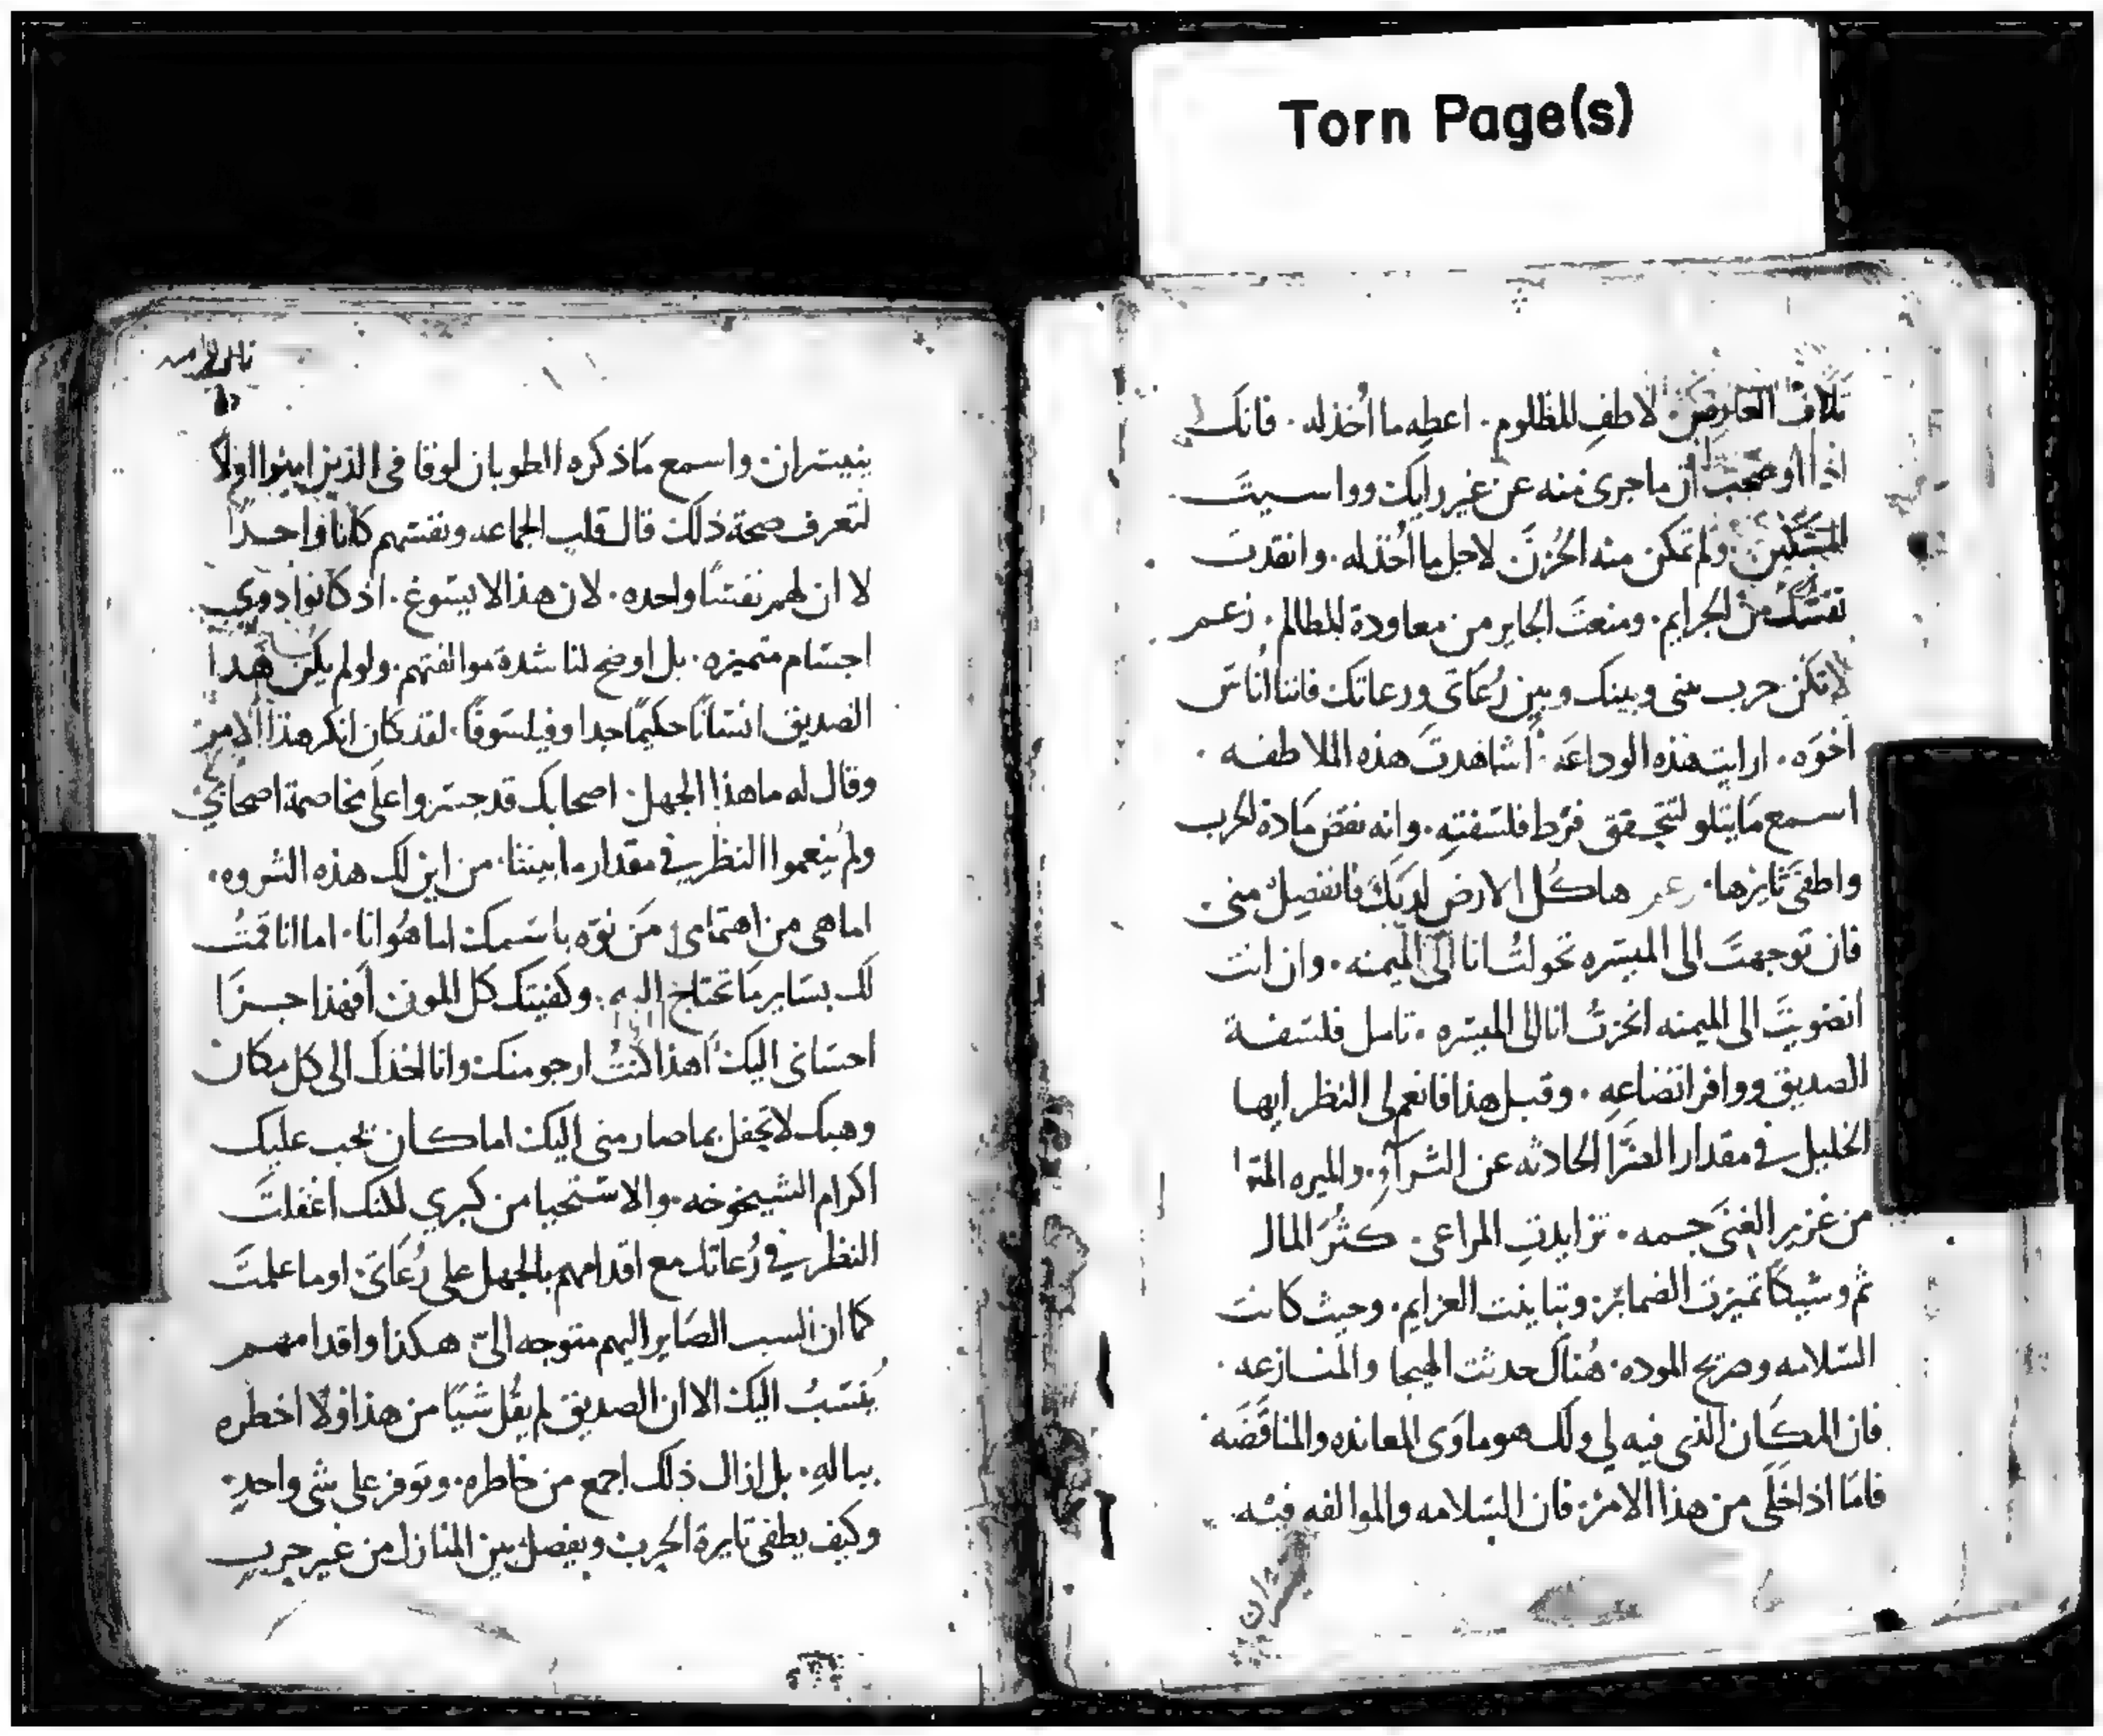 Torn Page(s)
تلاف العارض لاطف للمظلوم. اعطه ما اُخذله. فانك
اذا اوضحت ان ماجرى منه عن غير رايك وواسيت
المسكين. ولم تمكن منه الحُزن لاجل ما اُخذله. وانقدت
نفسك من الجرايم. ومنعتَ الجاير من معاودة المظالم. زعم
لا تكن حرب بينى وبينك وبين رُعَاتى ورعاتك فاننا اُناس
اخوَه. ارايت هذه الوداعَه. اُشاهدتَ هذه الملاطفه.
اسمع مَا يتلو لتتحقق فرط فلسفته. وانه نقض مَادة الحرب
واطفى ثايرها. زعم هاكُل الارض لديَكَ فانفصِل منى.
فان توجهتَ الى الميسره تحولتُ انا الى الميمنه. وان انت
انضويتَ الى الميمنه انحزتُ انا الى الميسره. تامل فلسفة
الصديق ووافر اتضاعه. وقبل هذا فانعم لى النظر ايها
الخليل في مقدار الضرّا الحادثه عن الثرآءِ. والميره
من غزير الغنَى جمه. تزايدتِ المراعى. كثُرَ المال
ثم وشيكًا تميزت الضماير. وتباينت العزايم. وحيث كانت
السلامه وصريح الموده. هُناك حدثت الهيجا والمنازعه.
فان المكَان الذى فيه لي ولَك هو ماوَى المعانده والمناقَضَه
فامَا اذا خَلَى من هذا الامر. فان السلامه والموالفه فيه.
ينيسران. واسمع مَا ذكره الطوبان لوقا فى الذين امنوا اولاً
لتعرف صحة ذلك قال قلب الجماعه ونفسهم كانا واحدًا
لا ان لهم نفسًا واحده. لان هذا لا يسوغ. اذ كانوا دوي
اجسام متميزه. بل اوضح لنا شدة موالفتهم. ولو لم يكن هدا
الصديق انسانًا حكيمًا جدا وفيلسوفًا. لقد كان انكر هذا الامر
وقال له ما هذا الجهل. اصحابك قد جسروا على مخاصمة اصحابي
ولم يُنعموا النظر في مقدار ما بيننا. من اين لك هذه الثروه.
اما هى من اهتماى. مَن نوّه باسمك اما هُو انا. اما انا قمتُ
لك بساير مَا تحتاج اليه. وكفيتك كل المون اَفهذا جزا
احسانى اليك اَهذا كنتُ ارجو منك وانا اخذك الى كل مكان
وهبك لا تحفل بما صار منى اليك اما كان يجب عليك
اكرام الشيخوخه. والاستحيا من كبري لكنك اغفلت
النظر في رُعاتك مع اقدامهم بالجهل على رُعَاتى. اوما علمتَ
كما ان السب الصَاير اليهم متوجه الىّ هكذا واقدامهم
يُنسَبُ اليك الا ان الصديق لم يقُل شيًا من هذا ولا اخطره
ببالهِ. بل ازال ذلك اجمع من خاطره. وتوفر على شى واحدٍ.
وكيف يطفى نايرة الحرب ويفصل بين المنازل من غير حربٍ